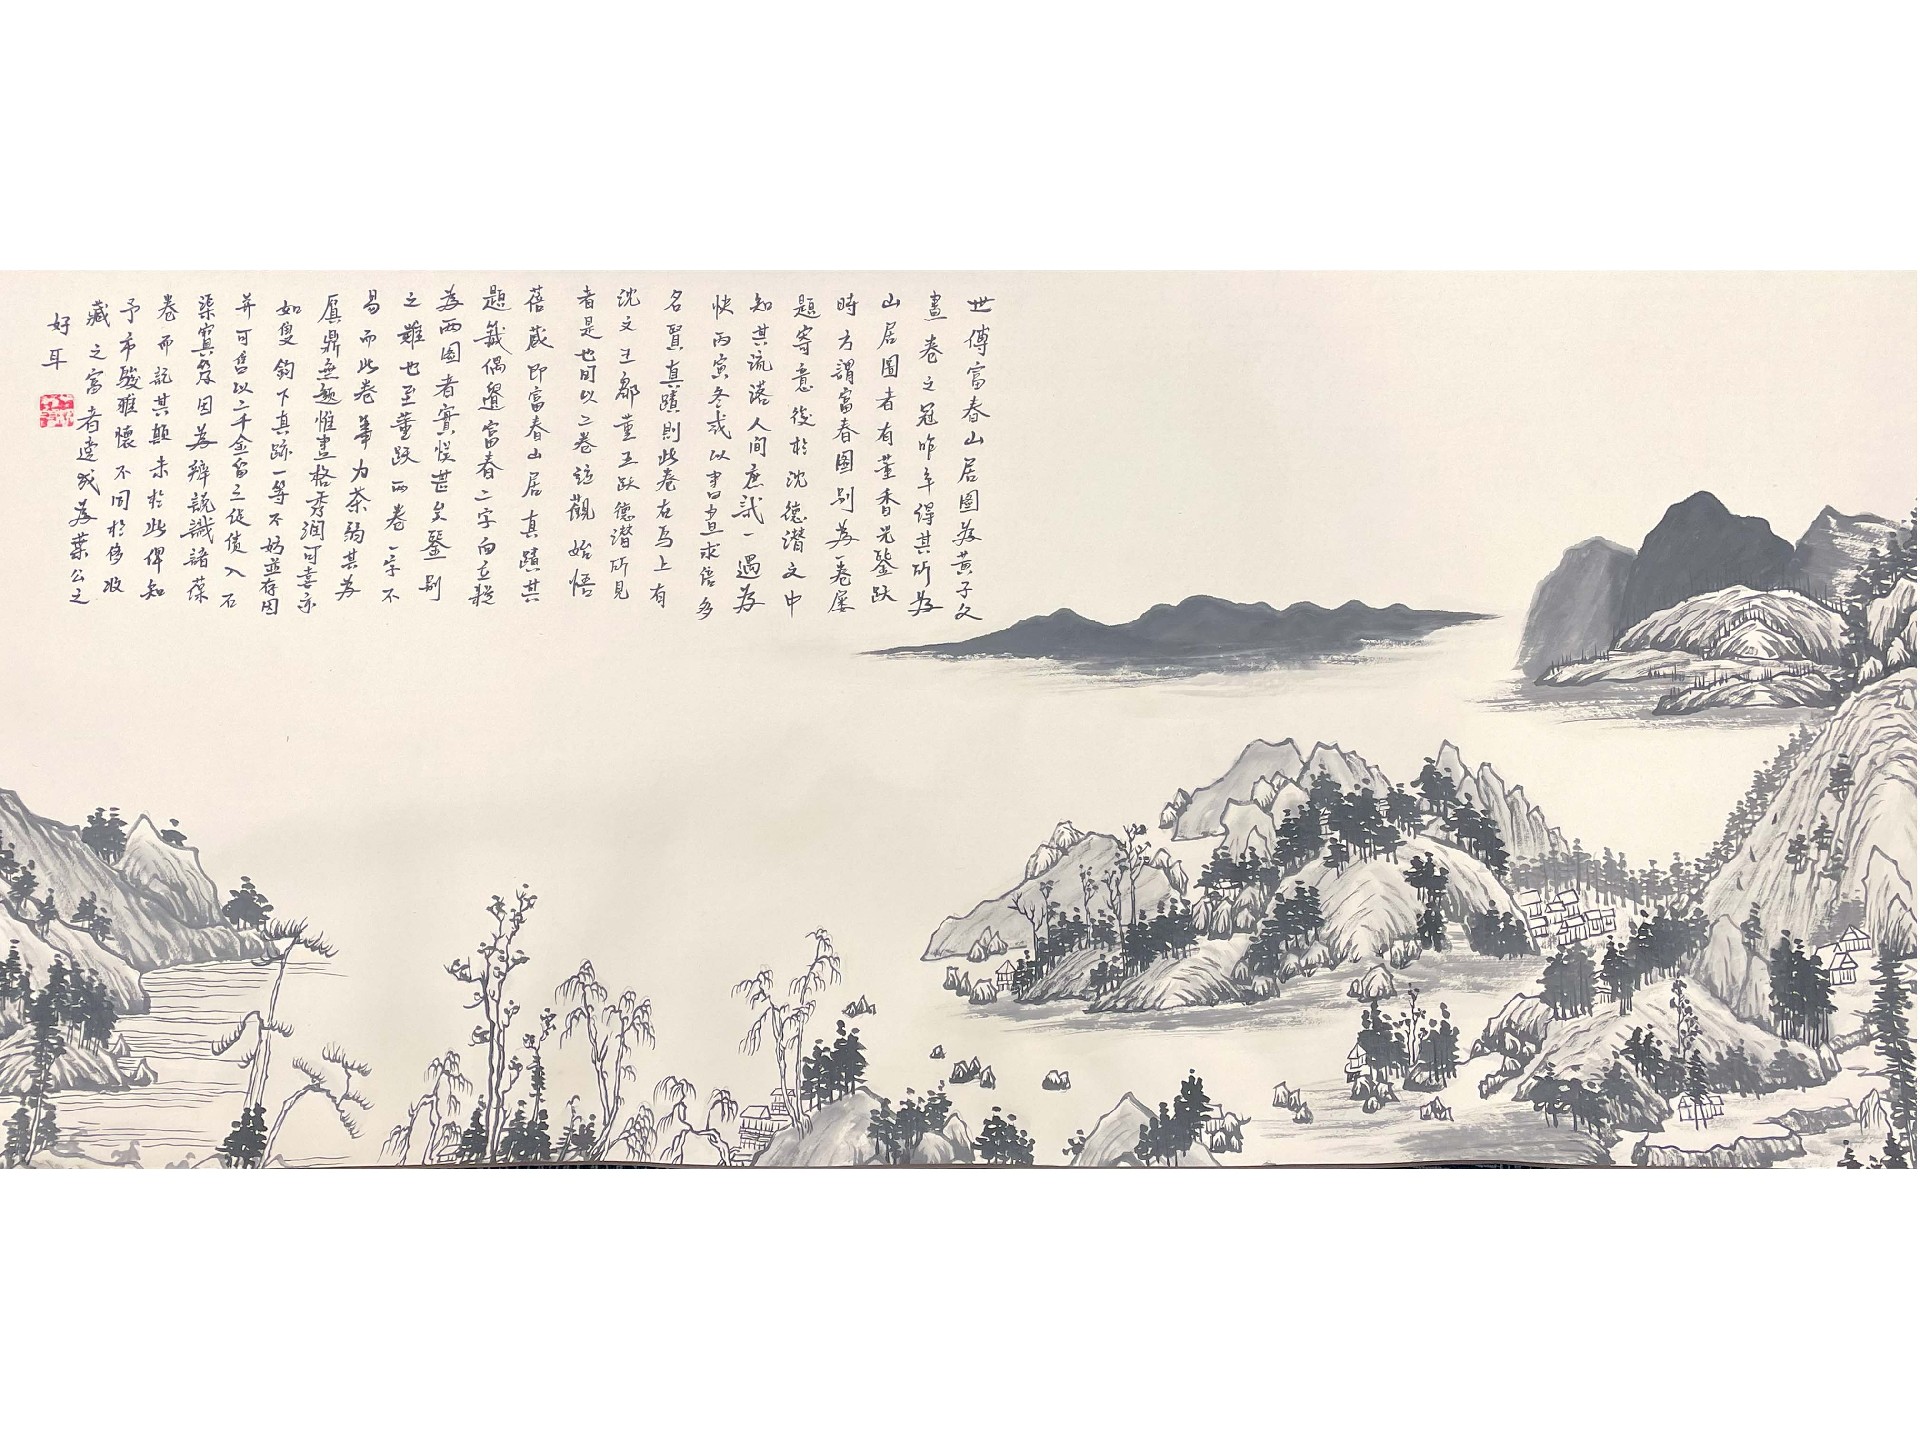 世傳富春山居圖為黃子久
畫卷之冠昨年得其所為
山居圖者有董香光鑒跋
時方謂富春圖別為一卷屢
題寄意後於沈德潛文中
知其流落人間庶幾一遇為
快丙寅冬或以書畫求售多
名賢真蹟則此卷在焉上有
沈文王鄒董五跋德潛所見
者是也因以二卷竝觀始悟
舊藏即富春山居真蹟其
題籤偶遺富春二字向之疑
為兩圖者實悮甚矣鑒別
之難也至董跋兩卷一字不
易而此卷筆力茶弱其為
贗鼎無疑惟畫格秀潤可喜亦
如雙鉤下真跡一等不妨並存因
并所售以二千金留之俟續入石
渠寶笈因為辨說識諸葆
卷而記其顛末於此俾知
予市駿雅懷不同於侈收
藏之富者達或為葉公之
好耳